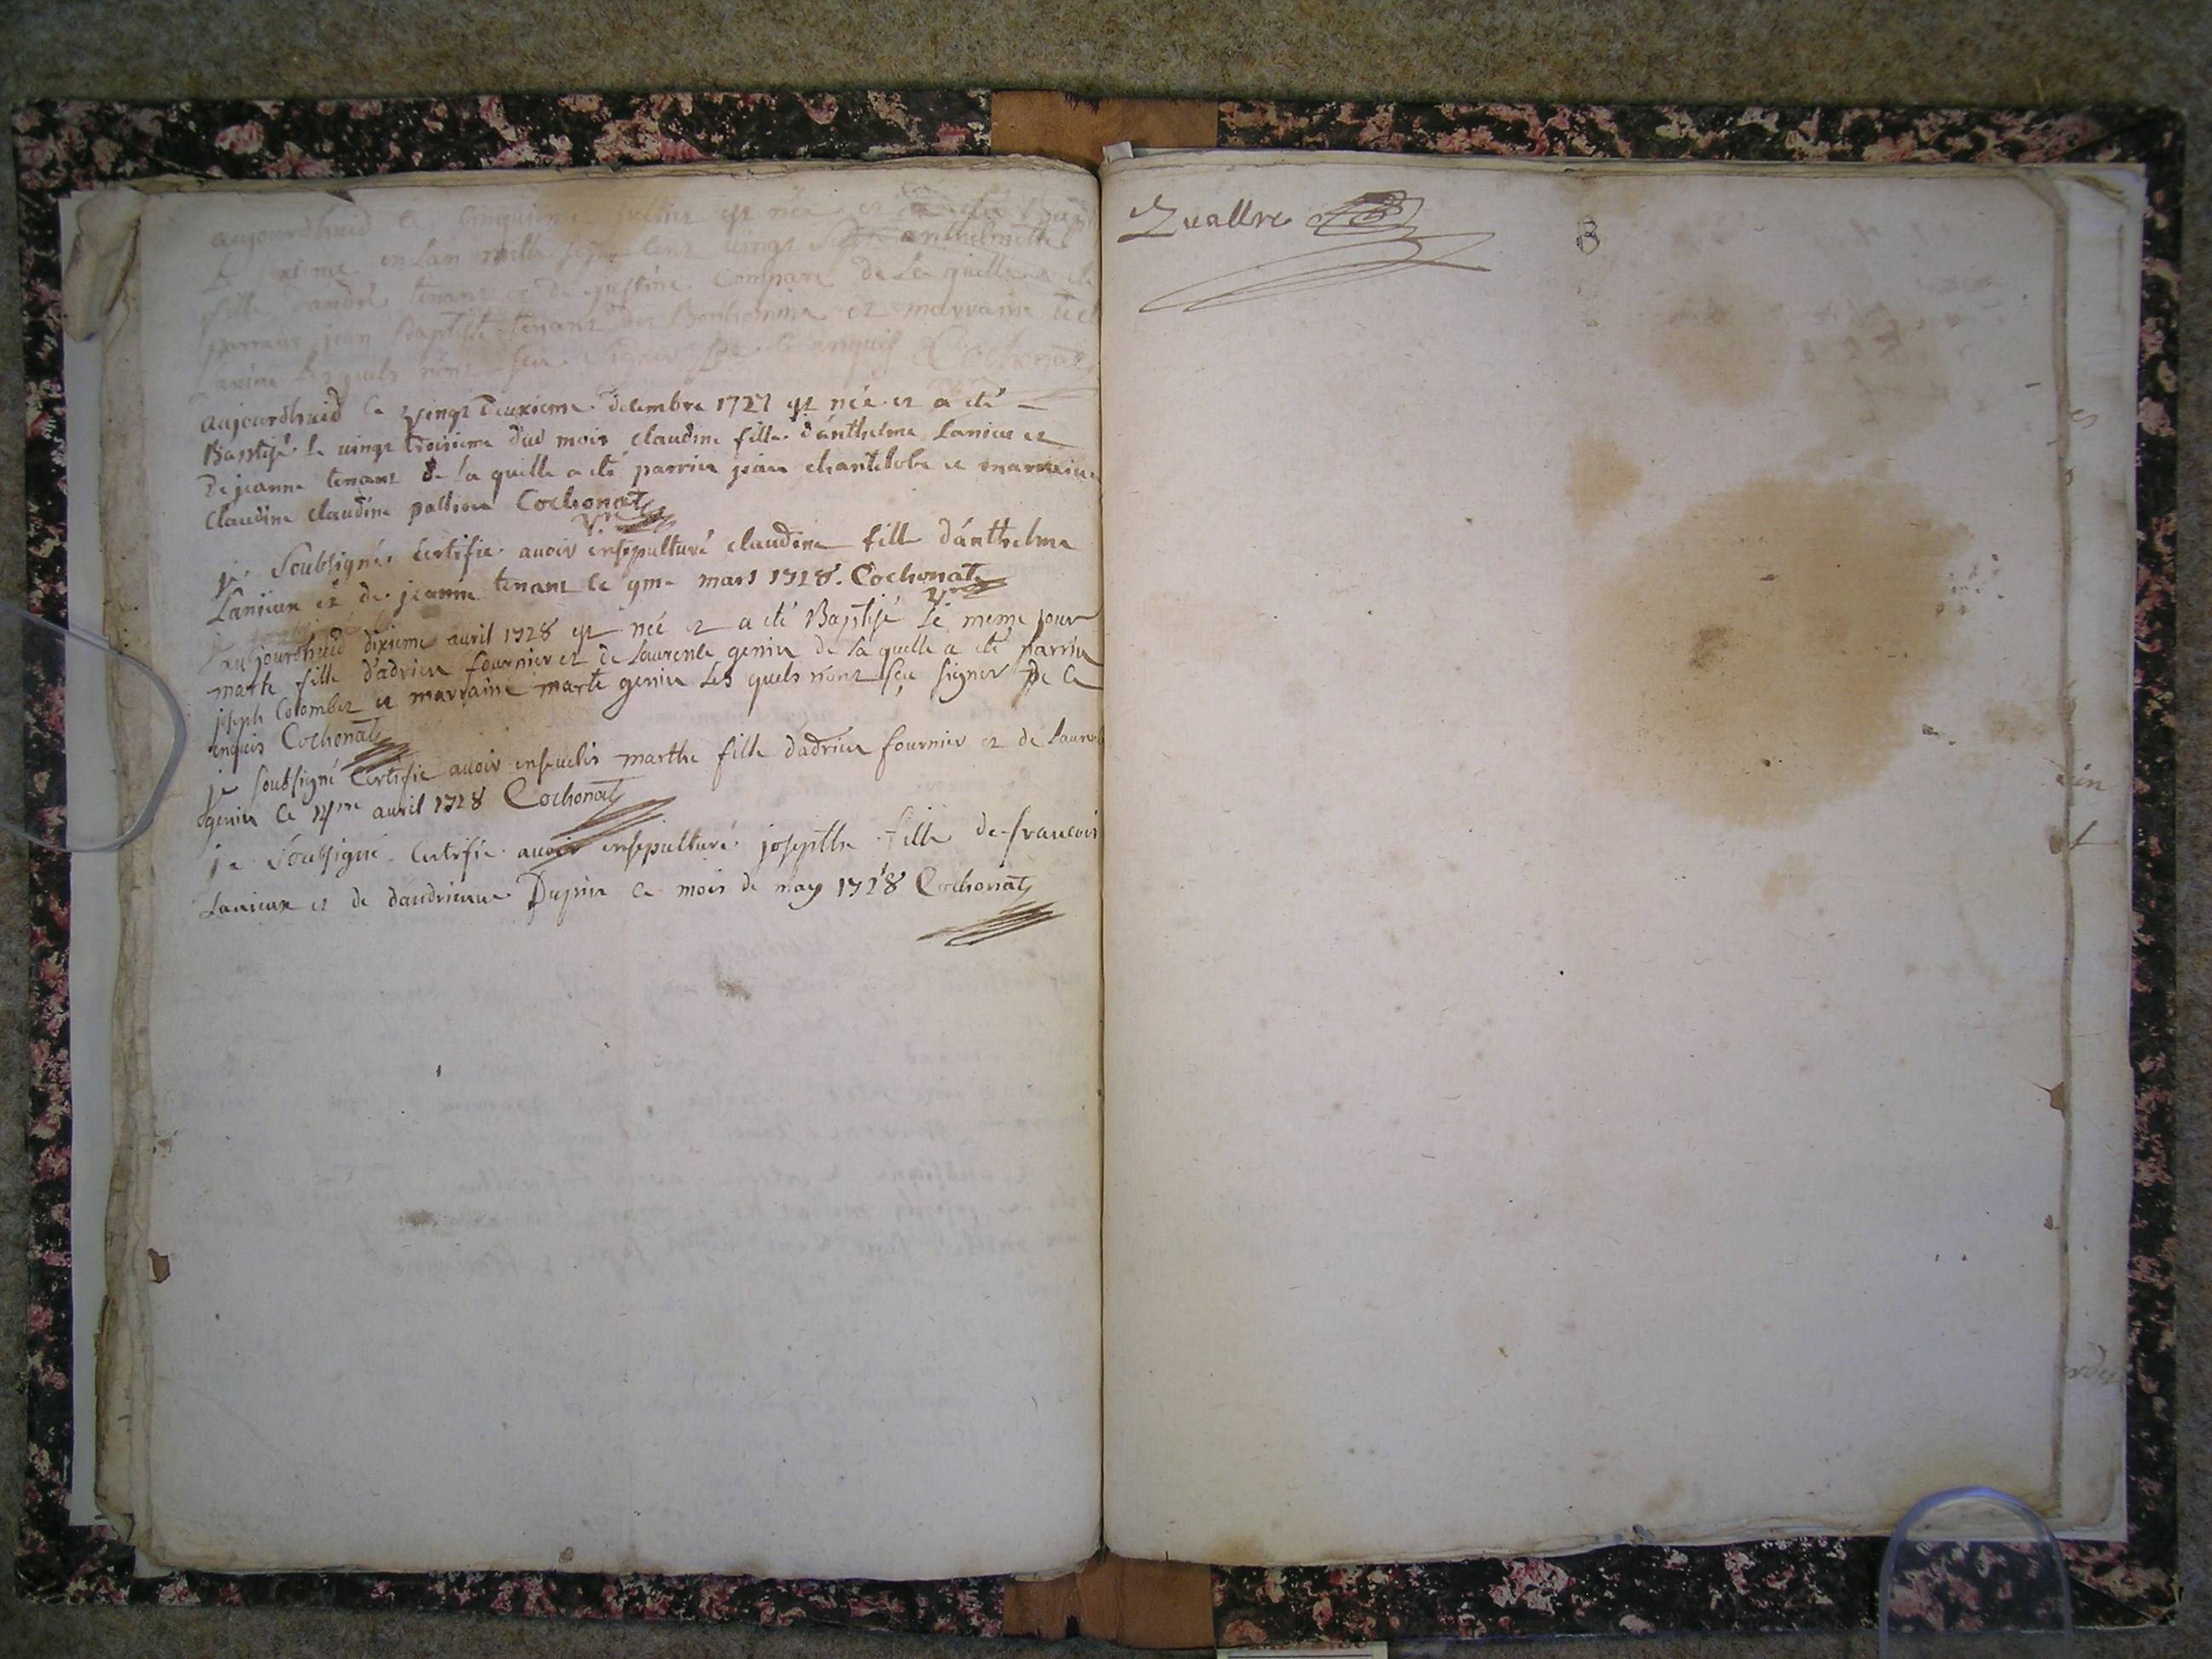 aujourdhuid le cinquieme juillier est née et a eté Bap
le en lan mille sept cent vingt sept anthelmette
fille dandré tenant et de justine compare de la quelle a eté
parrain jean Baptiste tenant dit Bonhomme et marraine
lesquels nont sceu signer de ce enquis Cochonat
aujourdhuid le vingt deuxieme decembre 1727 est née et a eté
Baptisé le vingt troisieme dud mois claudine fille danthelme Lanieu et
de jeanne tenant de la quelle a eté parrin jean chantelobe et marraine
claudine claudine pallien Cochonat
vre
je soubsigné certifie avoir insepulturé claudine fille danthelme
Lanieux et de jeanne tenant le 9me mars 1728. Cochonat
vre
aujourdhuid dixieme avril 1728 est née et a eté Baptisé le meme jour
marte fille dadrien fournier et de Laurence genin de la quelle a eté parrin
joseph Colombet et marraine marte genin les quels nont sceu signer de ce
enquis Cochonat
je soubsigné certifie avoir ensevelis marthe fille dadrien fournier et de Laurence
genin le 14me avril 1728 Cochonat
je soubsigné certifie avoir insepulturé josepthe fille de francois
Lanieux et de dandrienne Dupin le mois de may 1728 Cochonat
Quattre
B